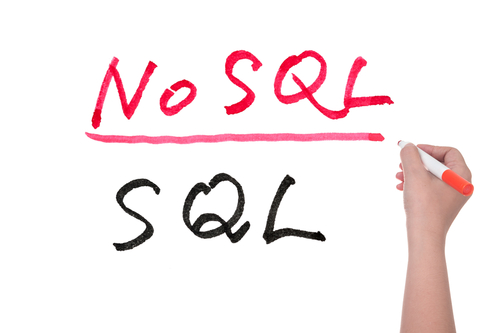 NoSQL
SQL